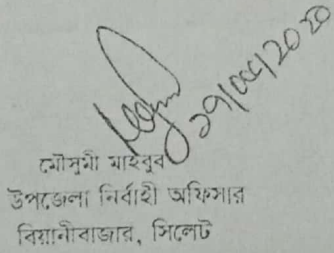 ২৭/০৫/2020
মৌসুমী মাহবুব
উপজেলা নির্বাহী অফিসার
বিয়ানীবাজার, সিলেট